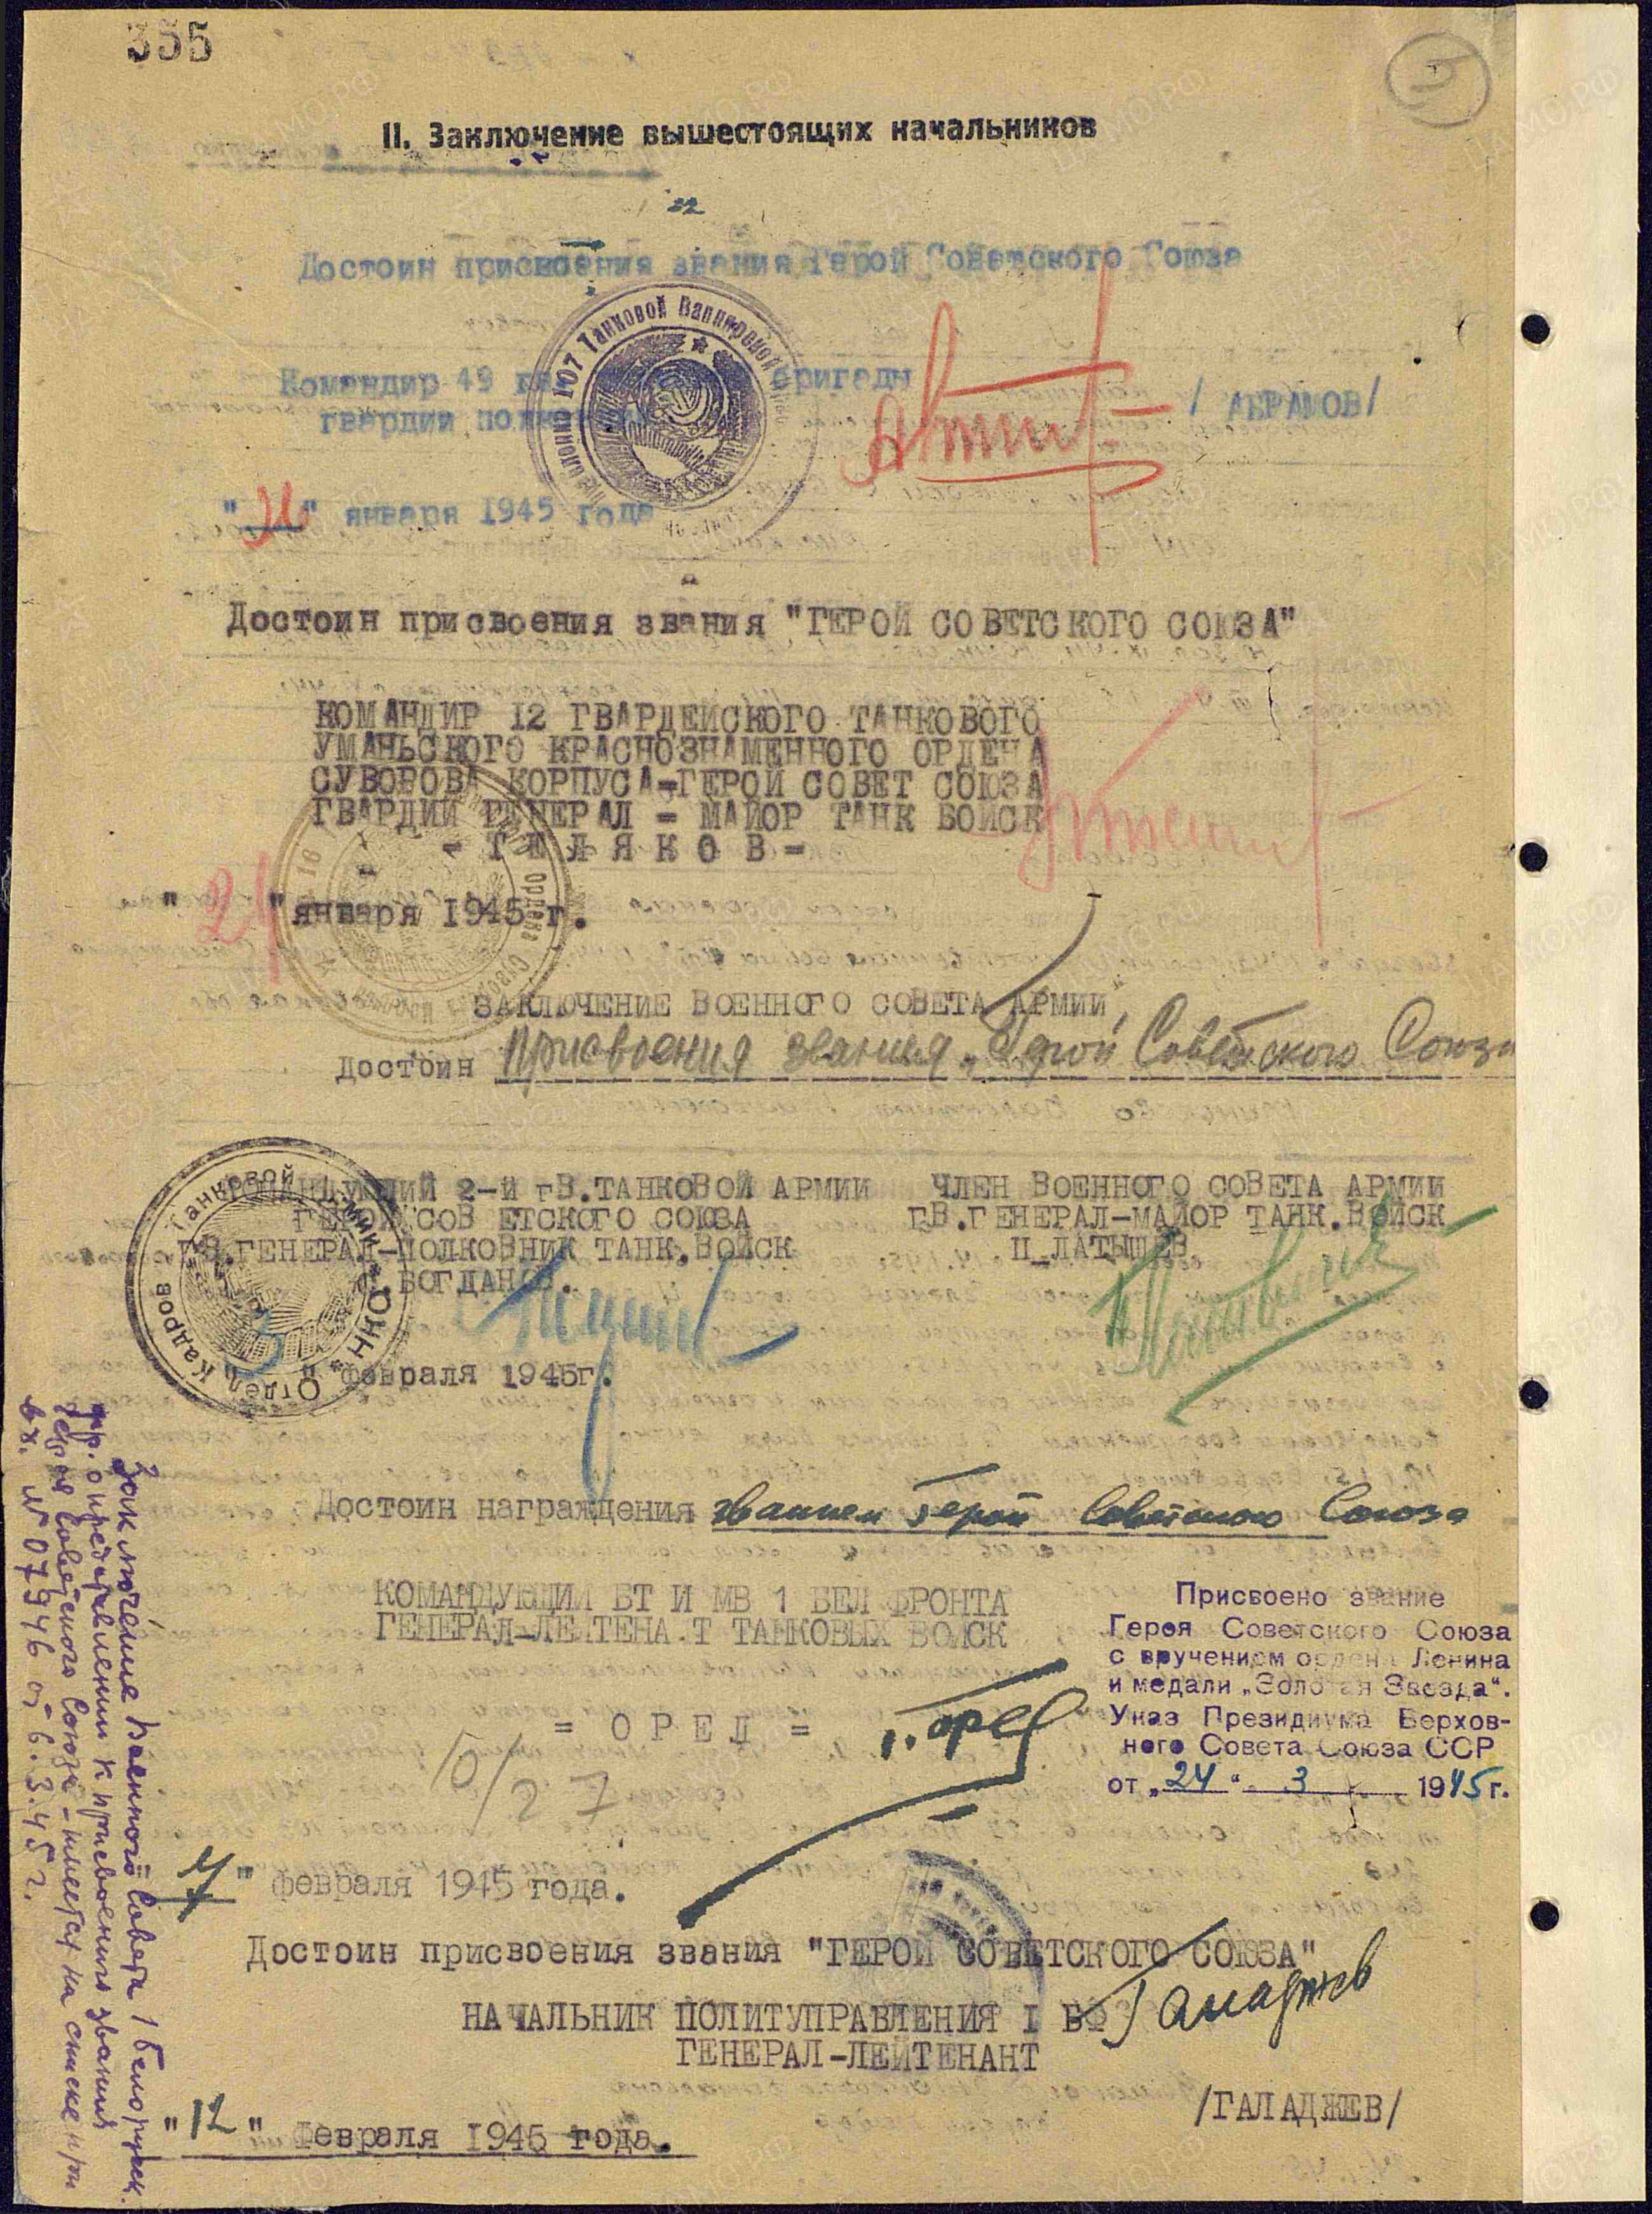 355
II. Заключение вышестоящих начальников
Достоин присвоения звания Герой Советского Союза
Командир 49 бригады
гвардии / АБРАМОВ/
107 Танковой
" " января 1945 года
Достоин присвоения звания "ГЕРОЙ СОВЕТСКОГО СОЮЗА"
КОМАНДИР 12 ГВАРДЕЙСКОГО ТАНКОВОГО
УМАНЬСКОГО КРАСНОЗНАМЕННОГО ОРДЕНА
СУВОРОВА КОРПУСА-ГЕРОЙ СОВЕТ СОЮЗА
ГВАРДИИ ГЕНЕРАЛ = МАЙОР ТАНК ВОЙСК
- Т Е Л Я К О В -
"21" января 1945 г.
ЗАКЛЮЧЕНИЕ ВОЕННОГО СОВЕТА АРМИИ
Достоин присвоения звания „Герой Советского Союза
КОМАНДУЮЩИЙ 2-й гв.ТАНКОВОЙ АРМИИ ЧЛЕН ВОЕННОГО СОВЕТА АРМИИ
ГЕРОЙ СОВЕТСКОГО СОЮЗА ГВ.ГЕНЕРАЛ-МАЙОР ТАНК.ВОЙСК
ГВ.ГЕНЕРАЛ-ПОЛКОВНИК ТАНК.ВОЙСК П ЛАТЫШЕВ
БОГДАНОВ.
Отдел Кадров Танковой
февраля 1945г.
Достоин награждения званием Герой Советского Союза
КОМАНДУЮЩИЙ БТ И МВ 1 БЕЛ ФРОНТА
ГЕНЕРАЛ-ЛЕЙТЕНАНТ ТАНКОВЫХ ВОЙСК
= О Р Е Л = Г. Орел
10/27
Присвоено звание
Героя Советского Союза
с вручением ордена Ленина
и медали „Золотая Звезда".
Указ Президиума Верхов-
ного Совета Союза ССР
от „24" 3 1945 г.
" февраля 1945 года.
Достоин присвоения звания "ГЕРОЙ СОВЕТСКОГО СОЮЗА"
НАЧАЛЬНИК ПОЛИТУПРАВЛЕНИЯ I БФ Галаджев
ГЕНЕРАЛ-ЛЕЙТЕНАНТ
/ГАЛАДЖЕВ/
"12" Февраля 1945 года.
Заключение Военного Совета 1 Белорусск.
фр. о представлении к присвоению звания
Героя Советского Союза - имеется на списке при
вх. № 07946 от 6.3.45 г.